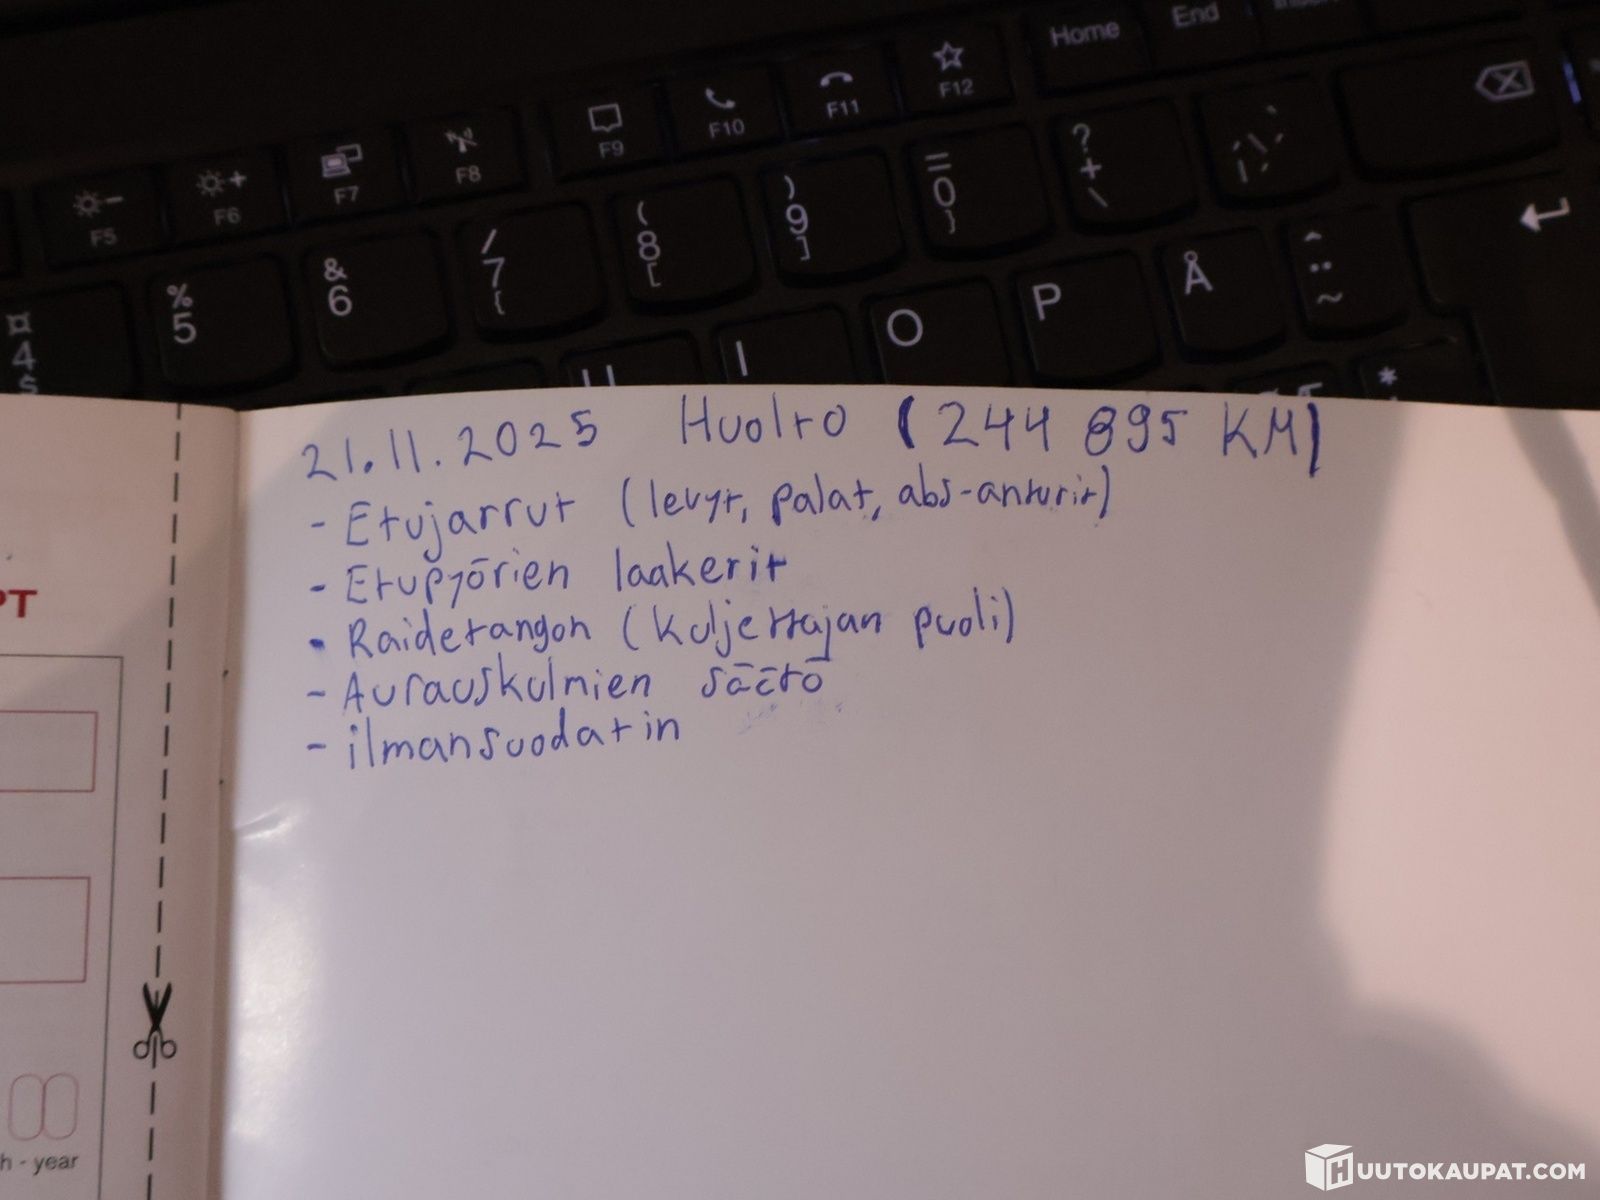 Home End
F5 F6 F7 F8 F9 F10 F11 F12
¤ 4 $ % 5 & 6 / 7 { ( 8 [ ) 9 ] = 0 } ? + \
U I O P Å ^ ¨ ~ *
21.11.2025 Huolto (244 895 KM)
- Etujarrut (levyt, palat, abs-anturit)
- Etupyörien laakerit
- Raidetangon (kuljettajan puoli)
- Aurauskulmien säätö
- ilmansuodatin
PT
h - year
HUUTOKAUPAT.COM